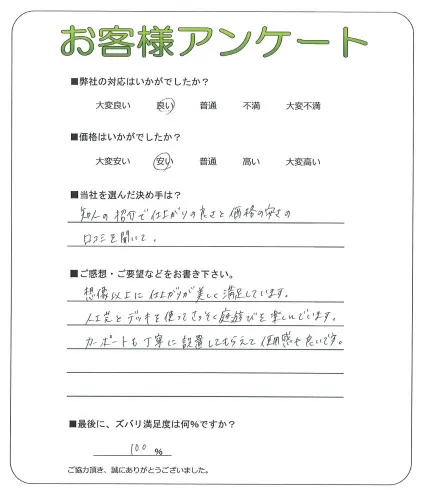 お客様アンケート
■弊社の対応はいかがでしたか？
大変良い　良い　普通　不満　大変不満
■価格はいかがでしたか？
大変安い　安い　普通　高い　大変高い
■当社を選んだ決め手は？
知人の紹介で仕上がりの良さと価格の安さの
口コミを聞いて。
■ご感想・ご要望などをお書き下さい。
想像以上に仕上がりが美しく満足しています。
人工芝とデッキを使ってさっそく庭遊びを楽しんでいます。
カーポートも丁寧に設置してもらえて使用感も良いです。
■最後に、ズバリ満足度は何%ですか？
100 %
ご協力頂き、誠にありがとうございました。